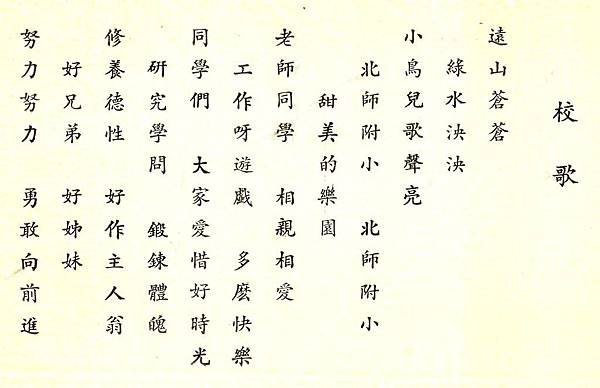 校歌
遠山蒼蒼
綠水泱泱
小鳥兒歌聲亮
北師附小 北師附小
甜美的樂園
老師同學 相親相愛
工作呀遊戲 多麽快樂
同學們 大家愛惜好時光
研究學問 鍛鍊體魄
修養德性 好作主人翁
好兄弟 好姊妹
努力努力 勇敢向前進